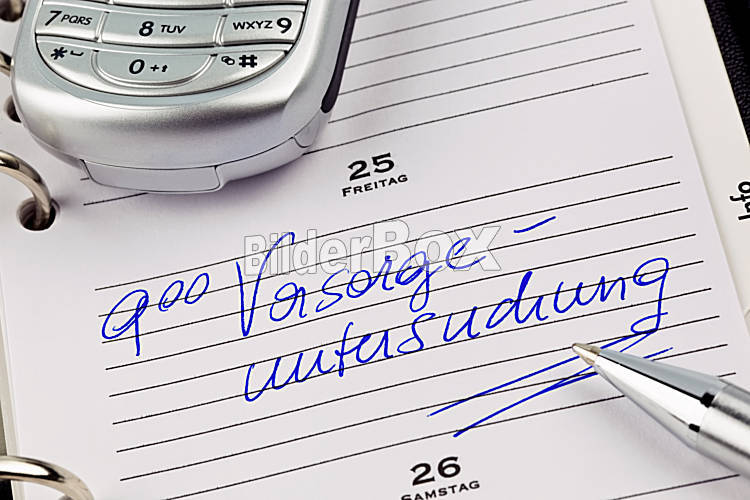 7 PQRS 8 TUV WXYZ 9
* 0 + #
25
FREITAG
BilderBox
9⁰⁰ Vorsorge-
untersuchung
Info
26
SAMSTAG